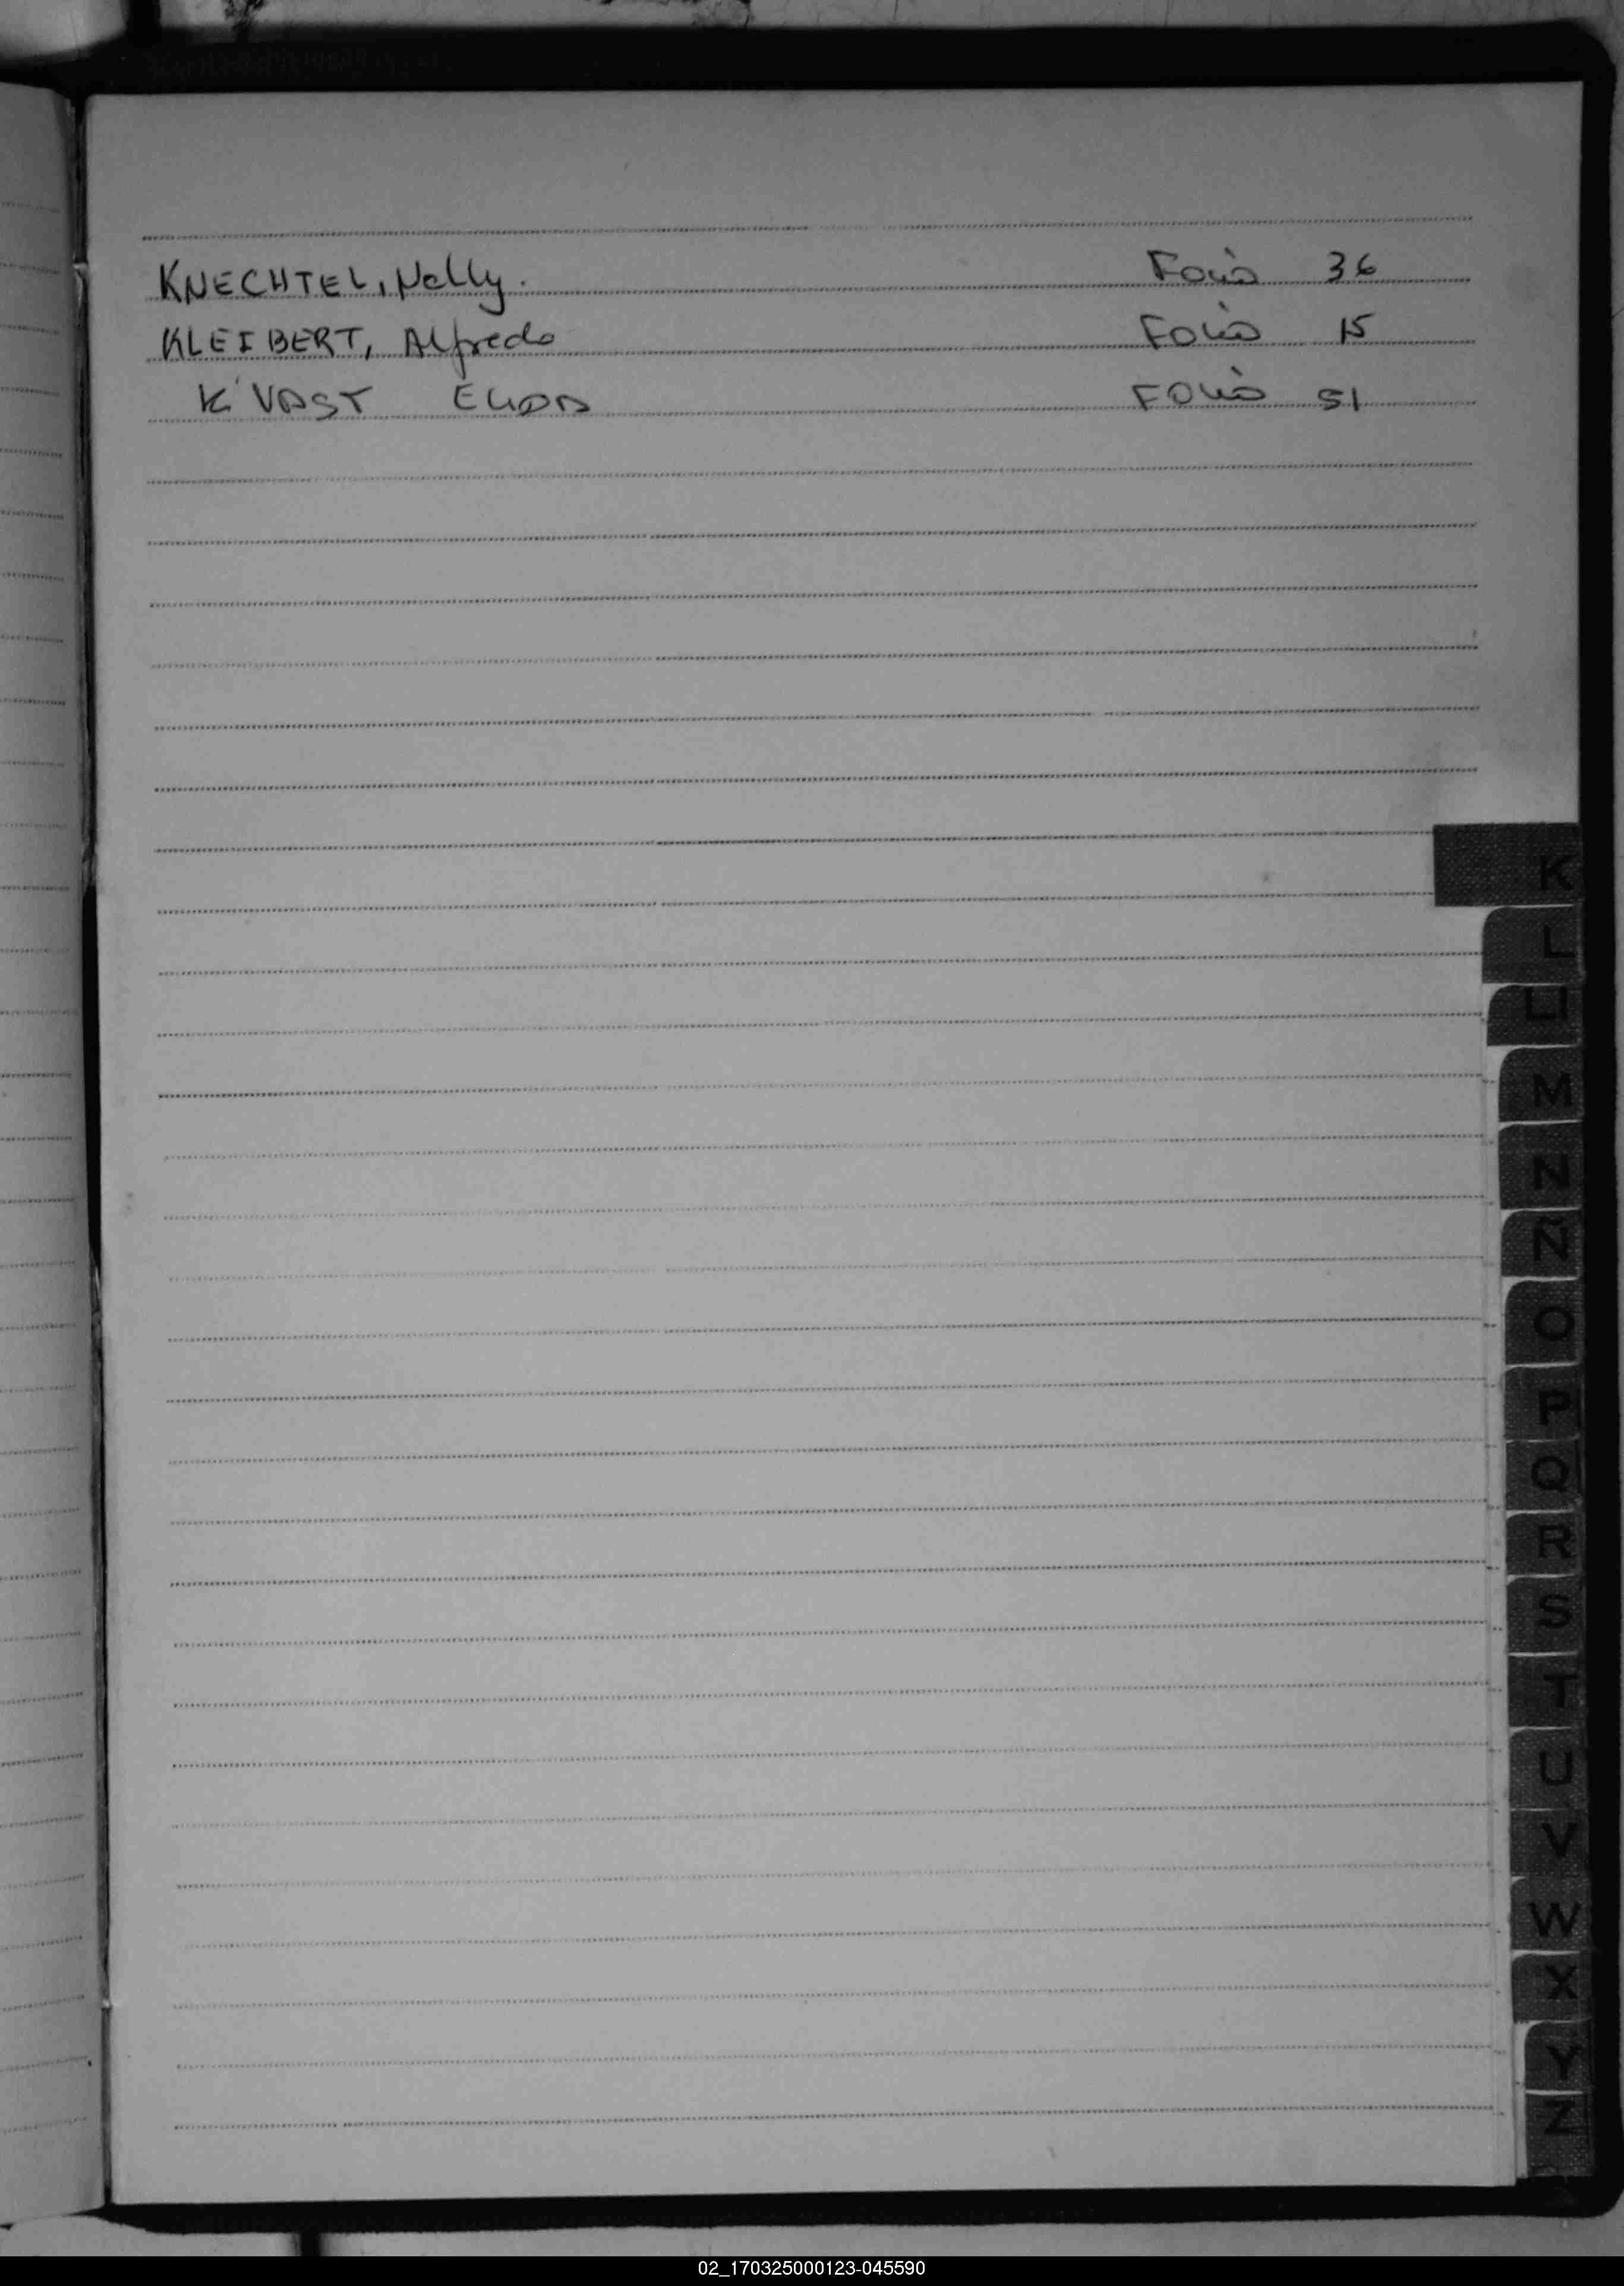 KNECHTEL, Nelly. Folio 36
KLEIBERT, Alfredo Folio 15
K'VAST Folio 51
K
L
Ll
M
N
Ñ
O
P
Q
R
S
T
U
V
W
X
Y
Z
02_170325000123-045590